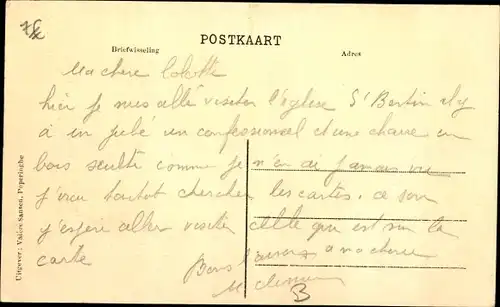 POSTKAART
Briefwisseling
Adres
Ma chere
hier je suis allé visiter l'église St Bertin il y
à un jubé un confessionnal et une chaire en
bois sculté comme je n'en ai jamais vu
j'irai tantot chercher les cartes. ce soir
j'espère aller visiter celle qui est sur la
carte
Bons a ma chere
B
Uitgever: Valien-Sansen, Poperinghe